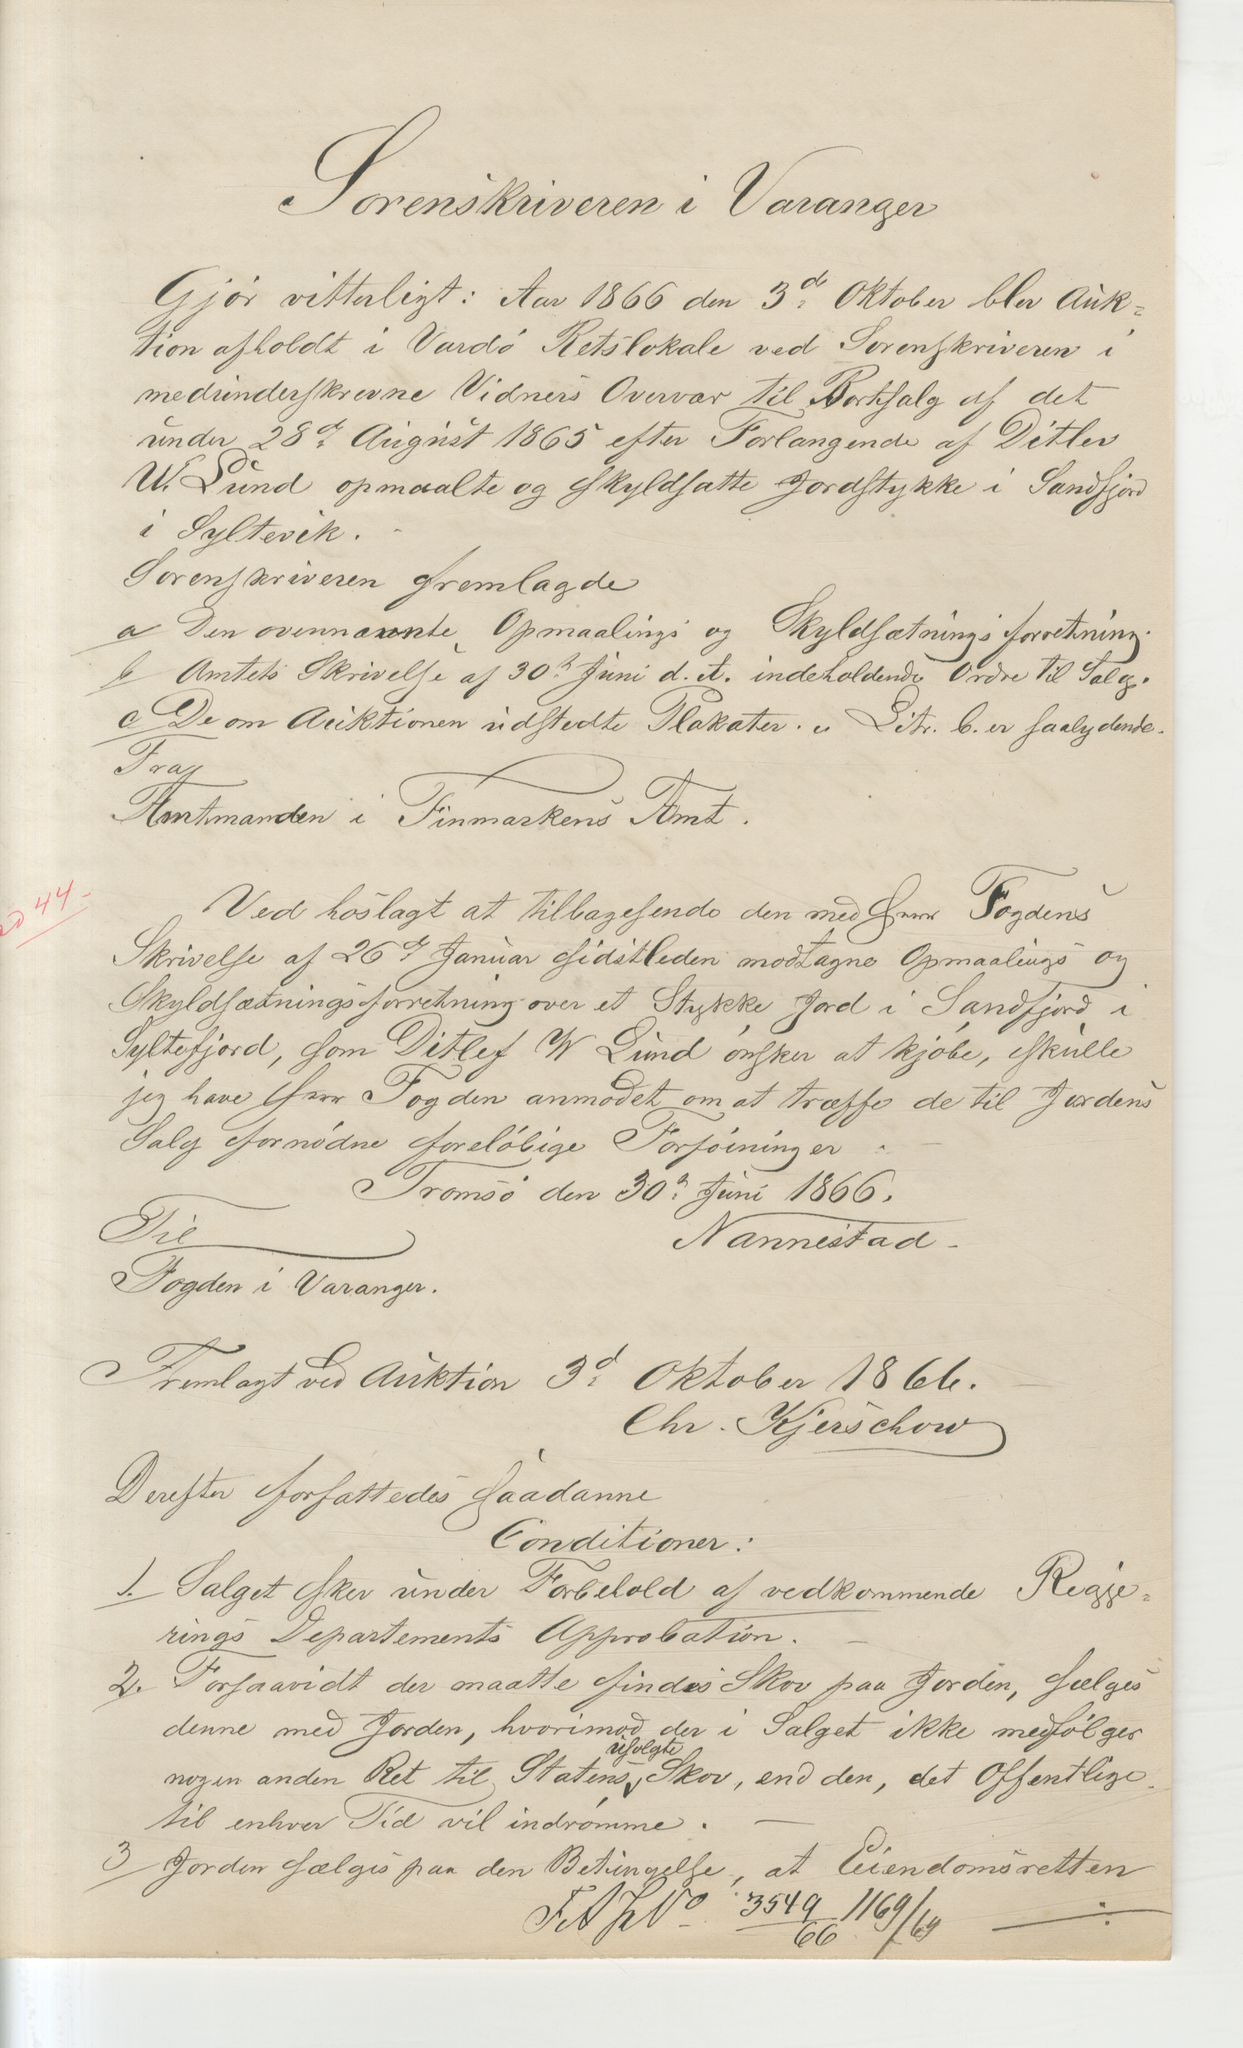 Sorenskriveren i Varanger
Gjör vitterligt: Aar 1866 den 3d Oktober blev Auk-
tion afholdt i Vardö Retslokale ved Sorenskriveren i
medunderskrevne Vidners Overvær til Bortsalg af det
under 28d August 1865 efter Forlangende af Ditlev
W. Lund opmaalte og skyldsatte Jordstykke i Sandfjord
i Syltevik.
Sorenskriveren fremlagde
a Den ovennævnte Opmaalings og Skyldsætningsforretning.
b Amtets Skrivelse af 30te Juni d. A. indeholdende Ordre til Salg.
c De om Auktionen udstedte Plakater. Litr. b. er saalydende.
Fra
Amtmanden i Finmarkens Amt.
44-
Ved hoslagt at tilbagesende den med Herr Fogdens
Skrivelse af 26de Januar sidstleden modtagne Opmaalings og
Skyldsætningsforretning over et Stykke Jord i Sandfjord i
Syltefjord, som Ditlef W Lund önsker at kjöbe, skulle
jeg have Herr Fogden anmodet om at træffe de til Jordens
Salg fornödne forelöbige Forföininger.
Tromsö den 30te Juni 1866.
Nannestad -
Til
Fogden i Varanger.
Fremlagt ved Auktion 3d Oktober 1866.
Chr. Kjerschow
Derefter forfattedes saadanne
Conditioner:
1. Salget sker under Forbehold af vedkommende Regje-
rings Departements Approbation.
2. Forsaavidt der maatte findes Skov paa Jorden, sælges
denne med Jorden, hvorimod der i Salget ikke medfölger
nogen anden Ret til Statens usolgte Skov, end den, det Offentlige
til enhver Tid vil indrömme.
3 Jorden sælges paa den Betingelse, at Eiendomsretten
No 3549/66 1169/69